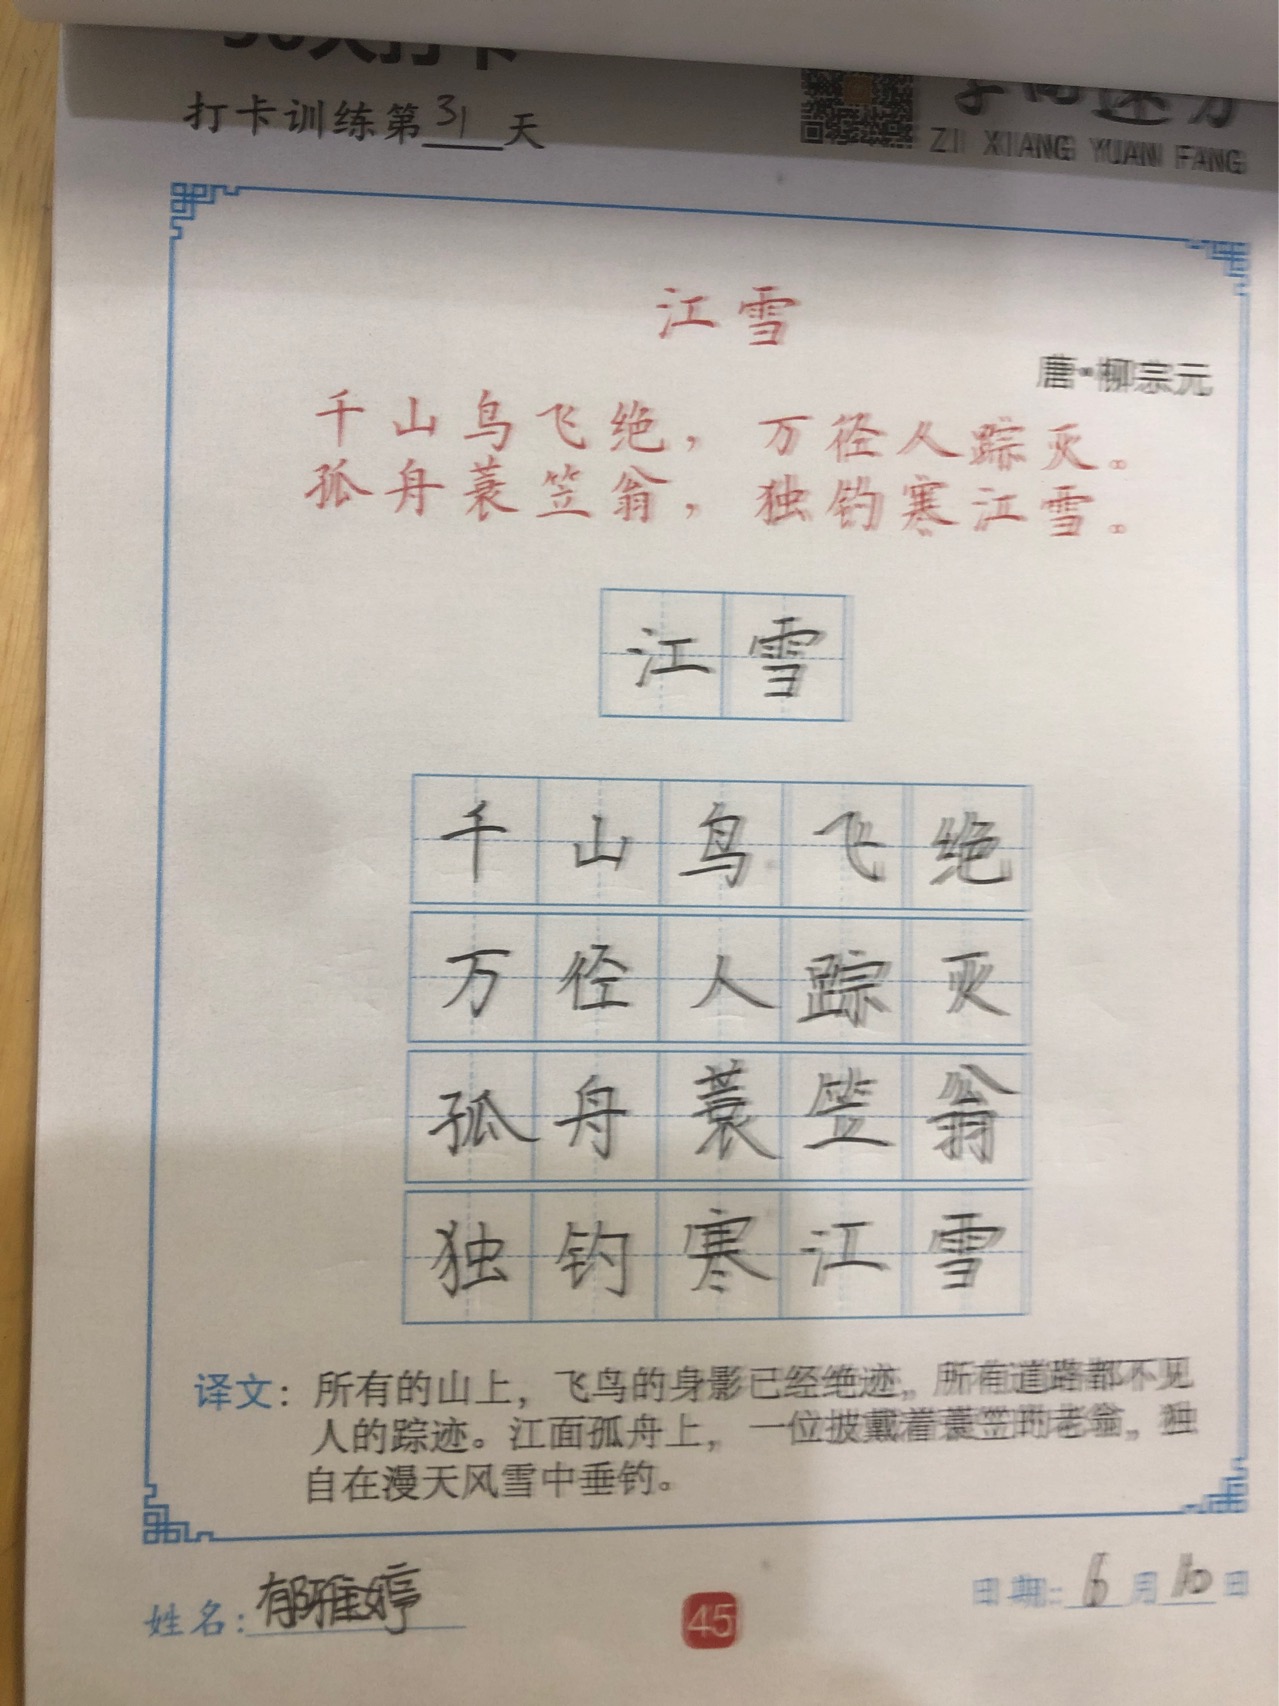 打卡训练第31天
ZI XIANG YUAN FANG
江雪
唐·柳宗元
千山鸟飞绝，万径人踪灭。
孤舟蓑笠翁，独钓寒江雪。
江雪
千山鸟飞绝
万径人踪灭
孤舟蓑笠翁
独钓寒江雪
译文：所有的山上，飞鸟的身影已经绝迹，所有道路都不见
人的踪迹。江面孤舟上，一位披戴着蓑笠的老翁，独
自在漫天风雪中垂钓。
姓名：郁雅婷
45
日期：6月10日